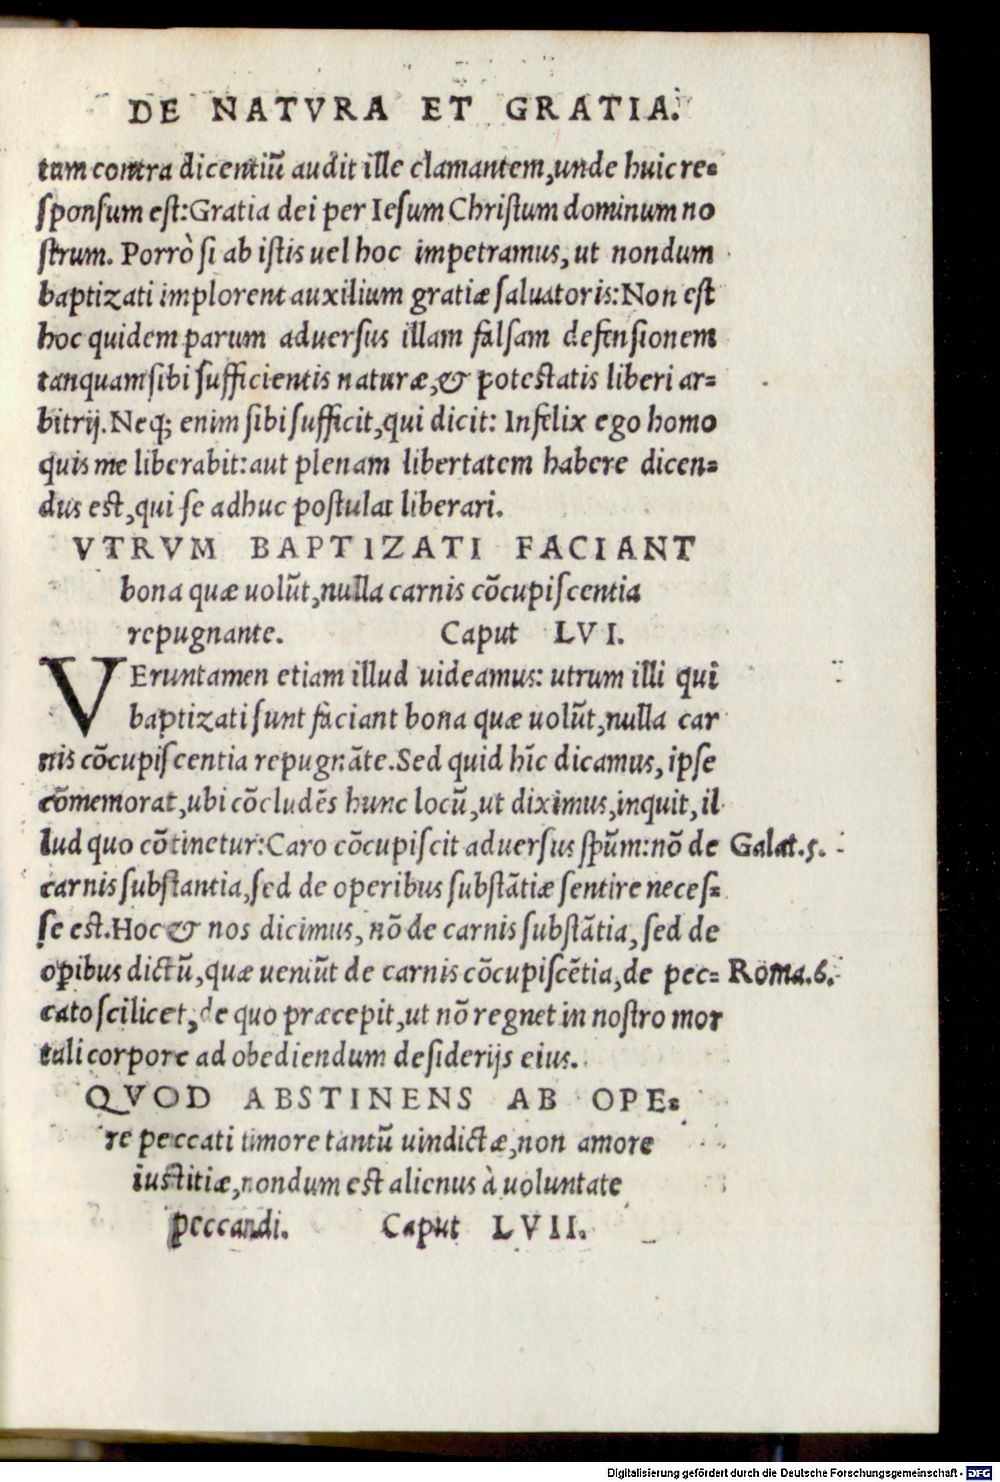 DE NATVRA ET GRATIA.
tum contra dicentiū audit ille clamantem, unde huic re-
sponsum est: Gratia dei per Iesum Christum dominum no
strum. Porrò si ab istis uel hoc impetramus, ut nondum
baptizati implorent auxilium gratiæ saluatoris: Non est
hoc quidem parum aduersus illam falsam defensionem
tanquam sibi sufficientis naturæ, & potestatis liberi ar-
bitrij. Neq; enim sibi sufficit, qui dicit: Infelix ego homo
quis me liberabit: aut plenam libertatem habere dicen-
dus est, qui se adhuc postulat liberari.
VTRVM BAPTIZATI FACIANT
bona quæ uolūt, nulla carnis cōcupiscentia
repugnante. Caput LVI.
VEruntamen etiam illud uideamus: utrum illi qui
baptizati sunt faciant bona quæ uolūt, nulla car
nis cōcupiscentia repugnāte. Sed quid hīc dicamus, ipse
cōmemorat, ubi cōcludēs hunc locū, ut diximus, inquit, il
lud quo cōtinetur: Caro cōcupiscit aduersus spūm: nō de Galat.5.
carnis substantia, sed de operibus substātiæ sentire neces-
se est. Hoc & nos dicimus, nō de carnis substātia, sed de
oꝑibus dictū, quæ ueniūt de carnis cōcupiscētia, de pec- Roma.6.
cato scilicet, de quo præcepit, ut nō regnet in nostro mor
tali corpore ad obediendum desiderijs eius.
QVOD ABSTINENS AB OPE-
re peccati timore tantū uindictæ, non amore
iustitiæ, nondum est alienus à uoluntate
peccandi. Caput LVII.
Digitalisierung gefördert durch die Deutsche Forschungsgemeinschaft - DFG